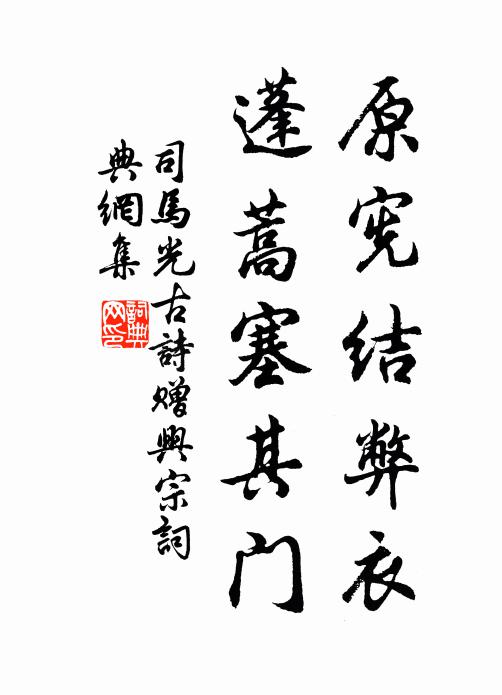 原宪结弊衣
蓬蒿塞其门
司馬光古詩贈興宗詞
典網集
詞典网印